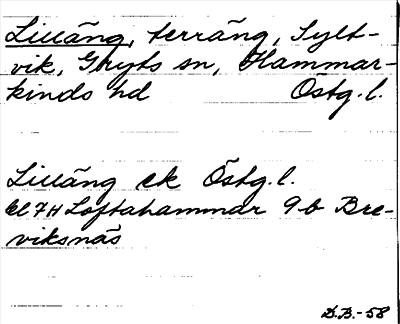 Lilläng, terräng, Sylt-
vik, Gryts sn, Hammar-
kinds hd Östg. l.
Lilläng ek Östg. l.
bl 7H Loftahammar 9b Bre-
viksnäs
D.B.-58